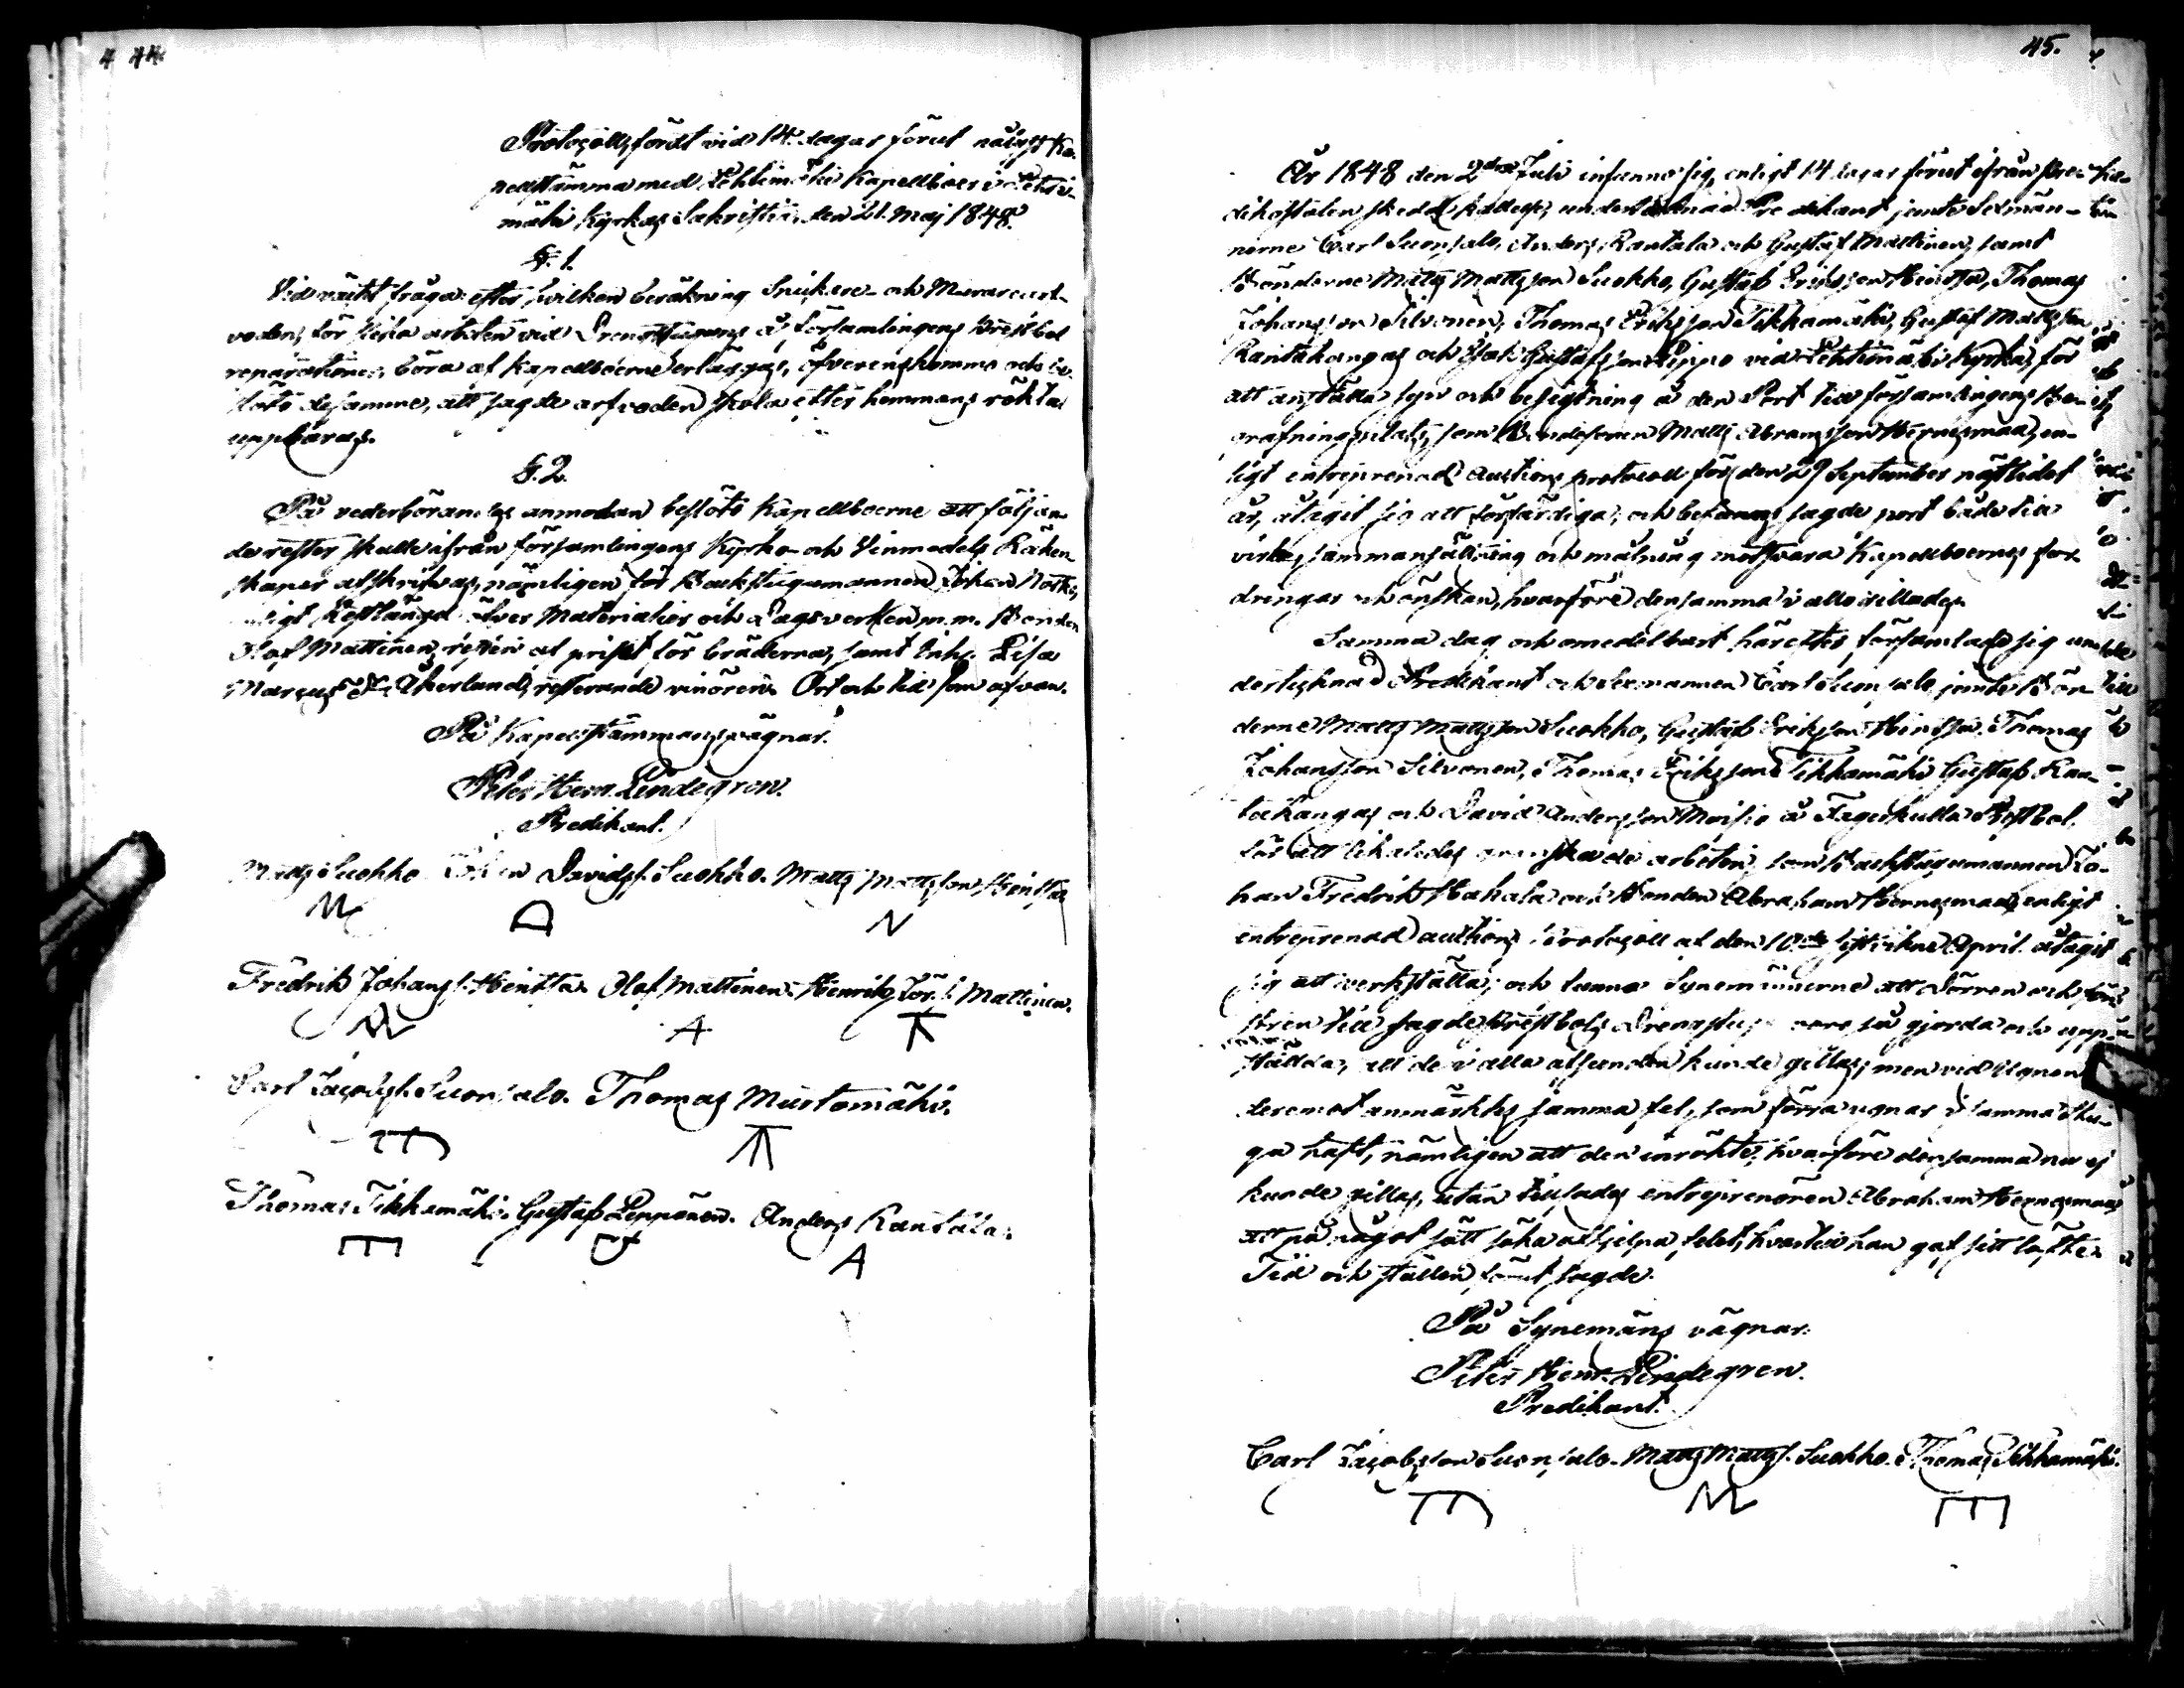 44.
Protocoll, fördt vid 14. dagar förut pålyst Ka-
pellstämma med Lehtimäki Kapellboer i Lehti-
mäki Kyrkas Sakristia, den 21. Maj 1848.
§. 1.
Vid väckt fråga: efter hvilken beräkning Snickare- och Murarearf-
voden, för sina arbeten vid Drengstugans å församlingens Prestbol
reparationer, böra af Kapellboerne erläggas, öfverenskommo och be-
slöto desamme, att sagde arfvoden skola efter hemmans röktal
uppbäras.
§. 2.
På vederbörandes anmodan beslöto Kapellboerne att följan-
de rester skulle ifrån församlingens Kyrko- och Vinmedels Räken-
skaper afskrifvas, nämligen för Backstugumannen Johan
enligt Restlängd öfver Materialier och Dagsverken m.m. Bonden
Olof Mattinen, resten af priset för bräderna, samt Inh. Lisa
Marcus Åkerlund, resterande vinören. Ort och tid som ofvan.
På Kapellstämmans vägnar:
Peter Henr. Lindegren.
Predikant.
Matts Suokko Davids. Suokko. Matts Mattsson Hintsa
M D N
Fredrik Johans s. Hintsa. Olof Mattinen. Henrik Mattinen.
A
Carl Jacobs s. Suonsalo. Thomas Mustamäki.
Thomas Tikkamäki. Gustaf Leppänen. Anders Rantala.
A
45.
År 1848 den 2dra Juli infunno sig, enligt 14 dagar förut ifrån Pre-
dikostolen skedd kallelse, undertecknad Predikant jemte Sexmän-
nerne Carl Suonsalo, Anders Rantala och Gustaf Mattinen, samt
Bönderne Matts Mattsson Suokko, Gustaf Eriksson Hintsa, Thomas
Johansson Silvonen, Thomas Eriksson Tikkamäki, Gustaf Mattsson
Rantakangas och Isak Gustafsson Leppo vid Lehtimäki Kyrka, för
att anställa syn och besigtning å den Port till församlingens Be-
grafningsplats, som Bondesonen Matts Abramsson Hernesmaa, en-
ligt entreprenad auctions protocoll för den 29 September nästlidet
år, åtagit sig att förfärdiga; och befanns sagde port både till
virke, sammansättning och målning motsvara Kapellboernes for-
dringar och önskan, hvarföre densamma i allo gillades.
Samma dag och omedelbart härefter, församlade sig un-
dertecknad Predikant och Sexmannen Carl Suonsalo jemte Bön-
derne Matts Mattsson Suokko, Gustaf Eriksson Hintsa, Thomas
Johansson Silvonen, Thomas Eriksson Tikkamäki Gustaf Ran-
takangas och David Andersson Moisio å Fagerkulla Prestbol
för att likaledes granska de arbeten, som Backstugumannen Jo-
han Fredrik Mahala och Bonden Abraham Hernesmaa, enligt
entreprenad auctions Protocoll af den 10de sistlidne April, åtagit
sig att verkställa; och funno Synemännerne att Dörren och fön-
stren till sagde Prestbols Drengstuga voro så gjorda och upp-
ställda, att de i alla afseenden kunde gillas; men vid Ugnen
deremot anmärktes samma fel, som förra ugnar i samma Stu-
ga haft, nämligen att den inrökte; hvarföre densamma nu ej
kunde gillas, utan tillsades entreprenören Abraham Hernesmaa
att på något sätt söka afhjelpa felet, hvartill han gaf sitt löfte.
Tid och ställen, förut sagde.
På Synemäns vägnar:
Peter Henr. Lindegren.
Predikant.
Carl Jacobsson Suonsalo. Matts Matts s. Suokko. Thomas Tikkamäki.
M